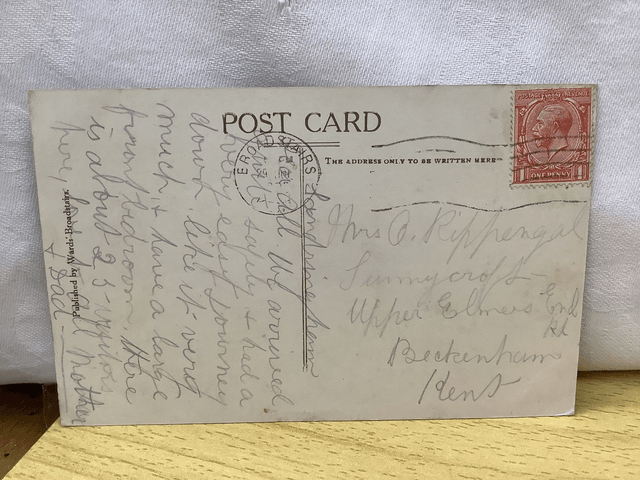 POST CARD
THE ADDRESS ONLY TO BE WRITTEN HERE
POSTAGE REVENUE
ONE PENNY
BROADSTAIRS
Published by Wards' Broadstairs
Sandringham
all. We arrived
quite safely & had a
very easy journey
down, like it very
much & have a large
front bedroom. Here
is about 25 visitors
here, love to all Mother
& Dad
Mrs O. Rippengal
Sunnycroft
Upper Elmers End
Rd
Beckenham
Kent